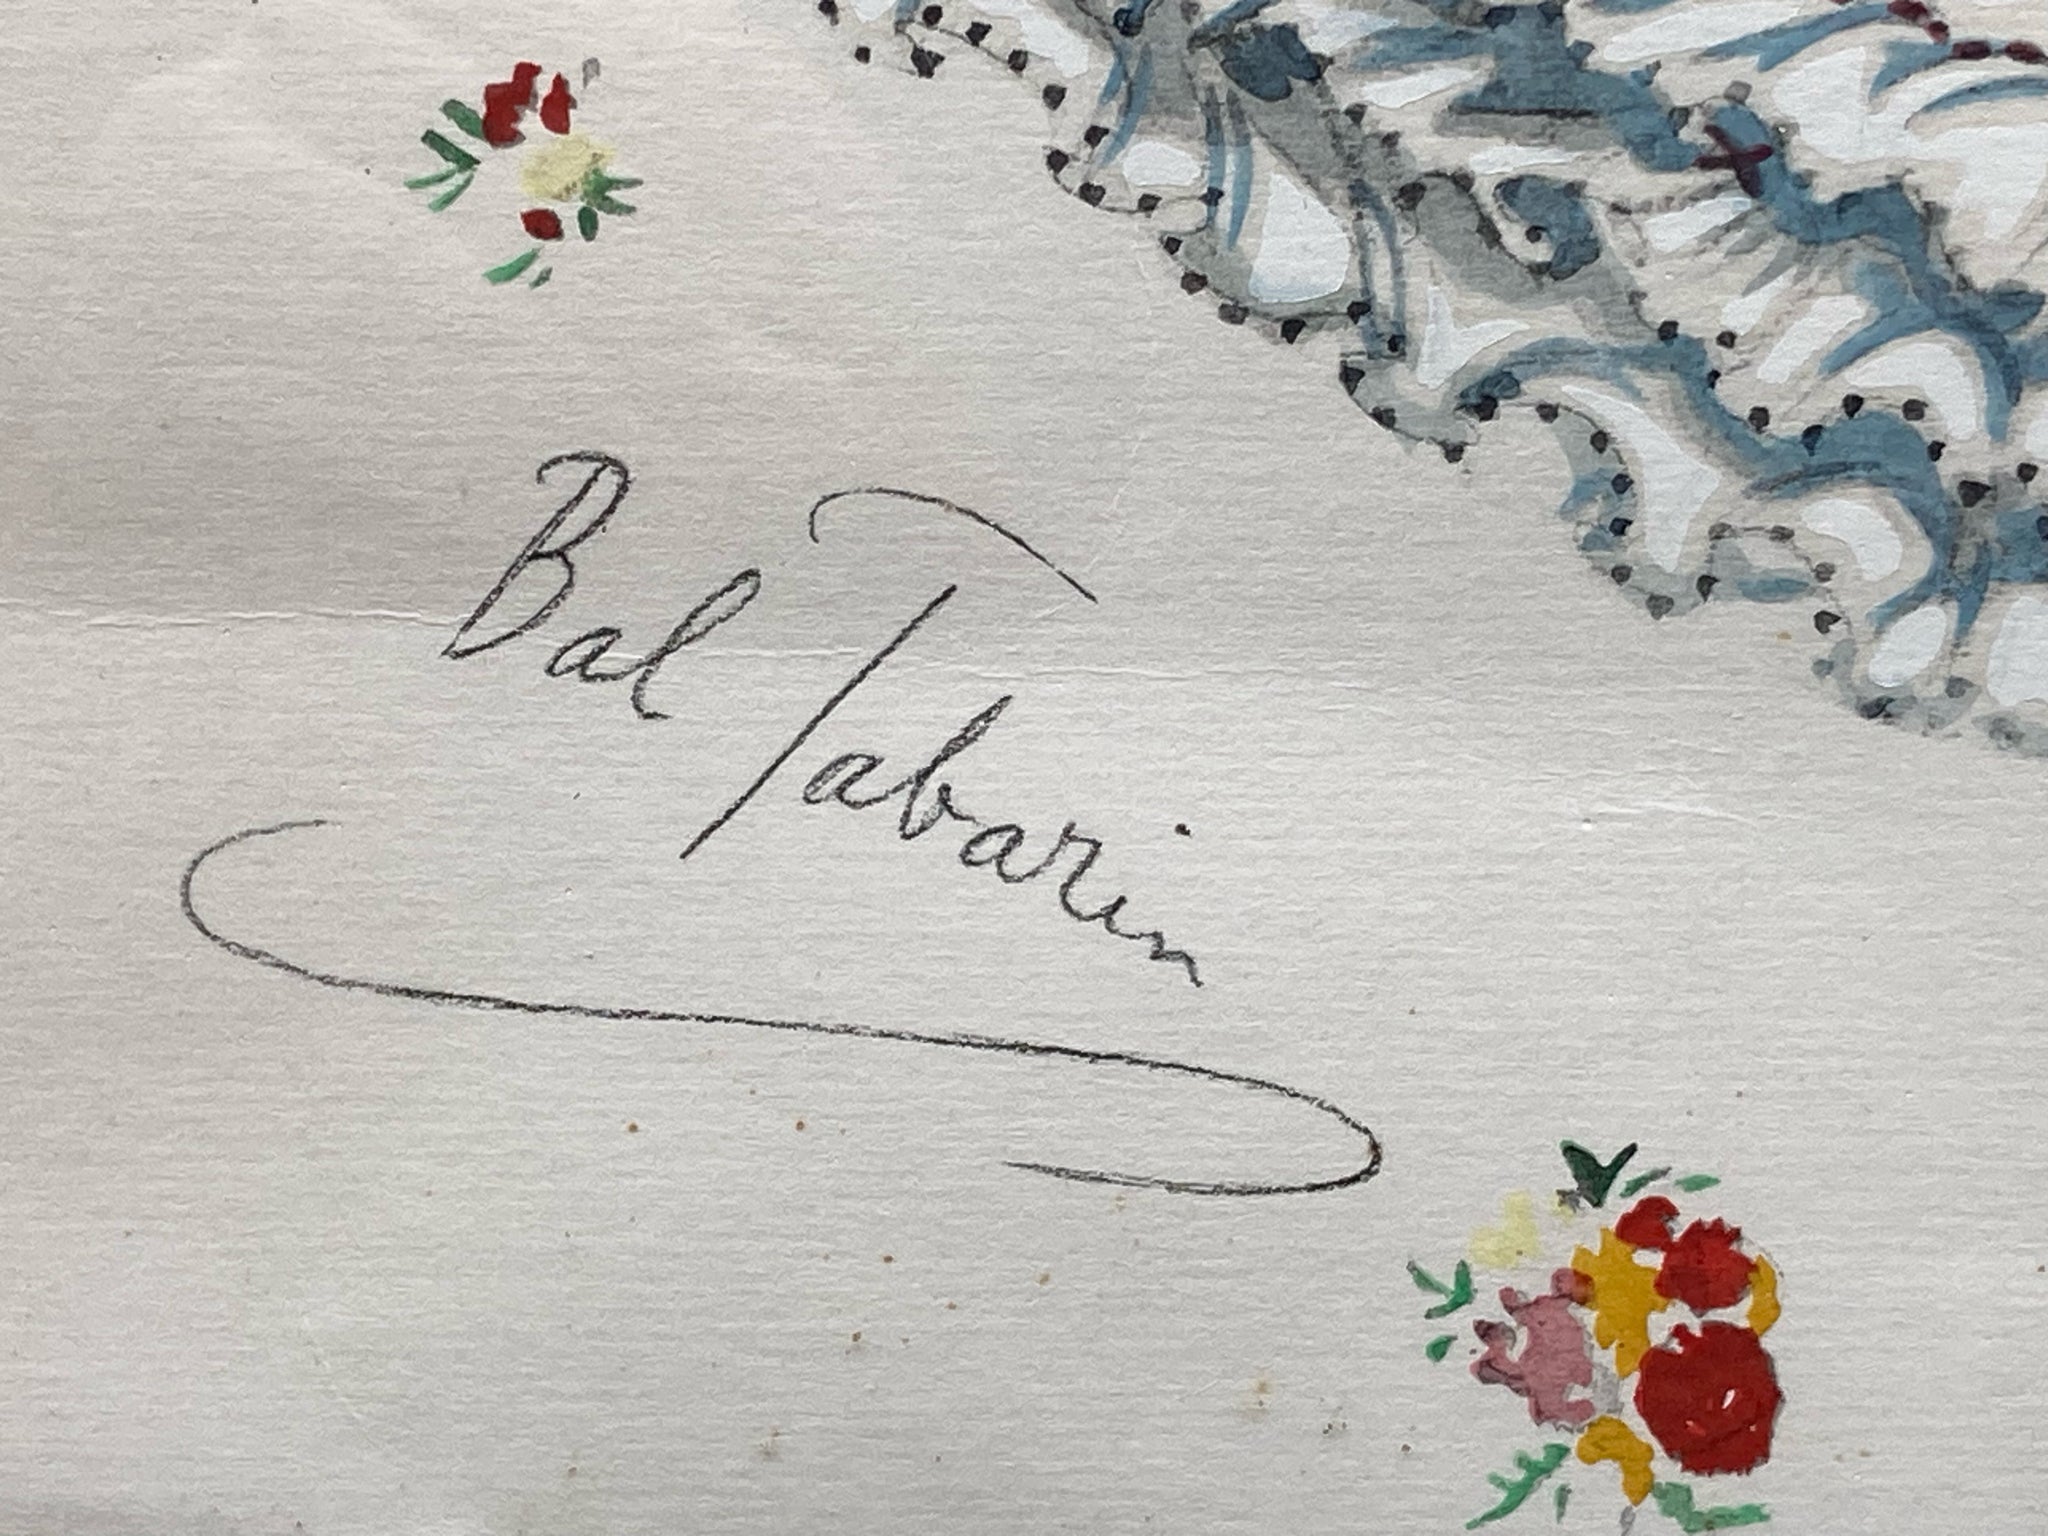 Bal Tabarin